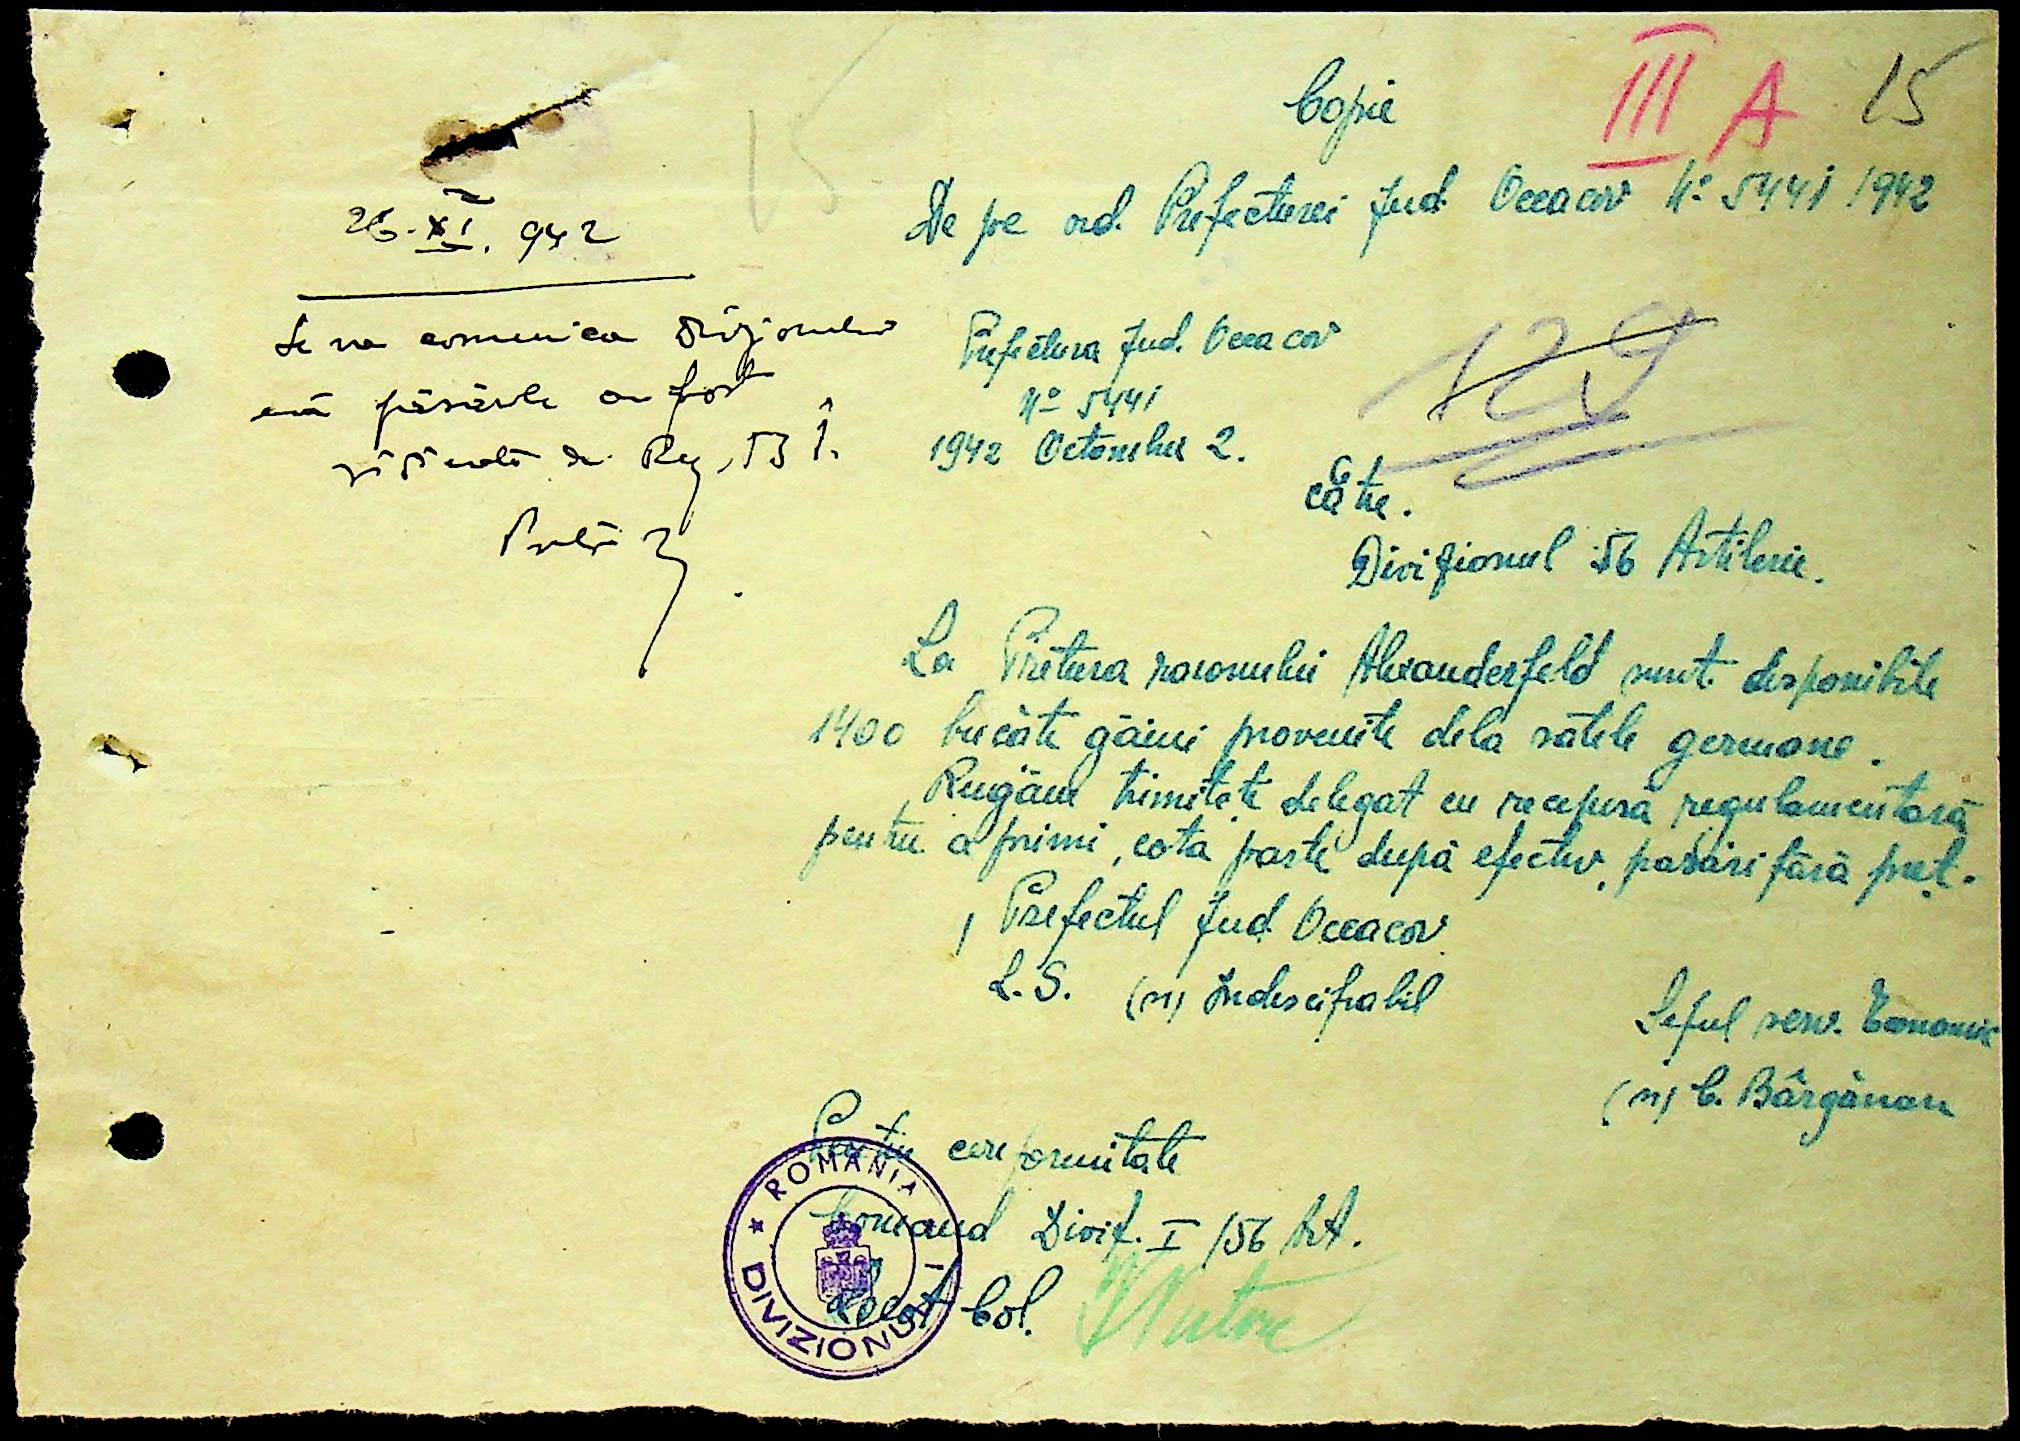 Copie
III A 15
De pe ord. Prefecturei Jud. Oceacov No 5441 1942
26.XI.942
Se va comunica Divizionului
că păsările au fost
ridicate de Reg. 53 I.
Prefectura Jud. Oceacov
No 5441
1942 Octombrie 2.
129
către.
Divizionul 56 Artilerie.
La Pretura raionului Alexanderfeld sunt disponibile
1400 bucăți găini provenite dela satele germane.
Rugăm trimiteți delegat cu recepisă regulamentară
pentru a primi, cota parte după efectiv, pasări fără preț.
/ Prefectul Jud. Oceacov
L.S. (ss) Indescifrabil
Șeful serv. Economic
(ss) C. Bărgăoan
Pentru conformitate
Comand Diviz. I /56 Art.
Locot Col.
ROMANIA
DIVIZIONUL I